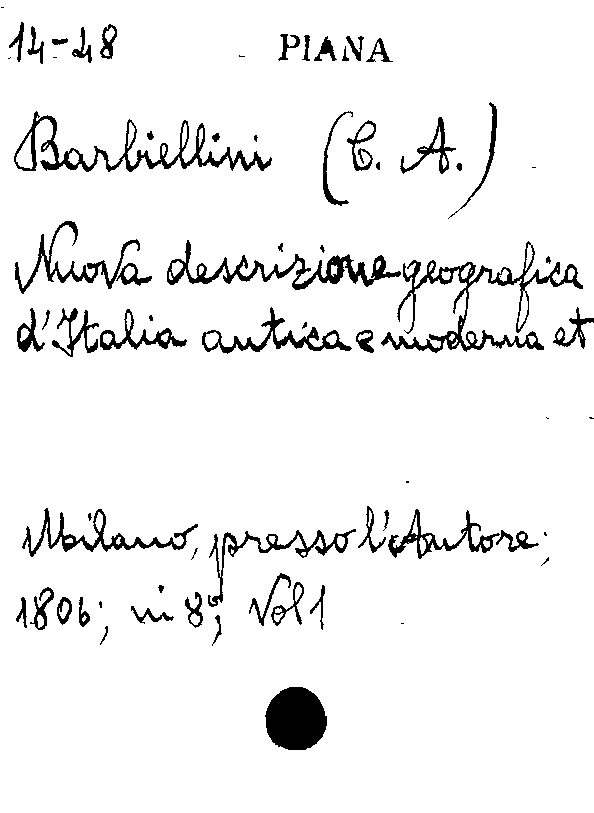 14-48 PIANA
Barbiellini (C. A.)
Nuova descrizione geografica
d'Italia antica e moderna et
Milano, presso l'Autore;
1806; in 8°; Vol 1